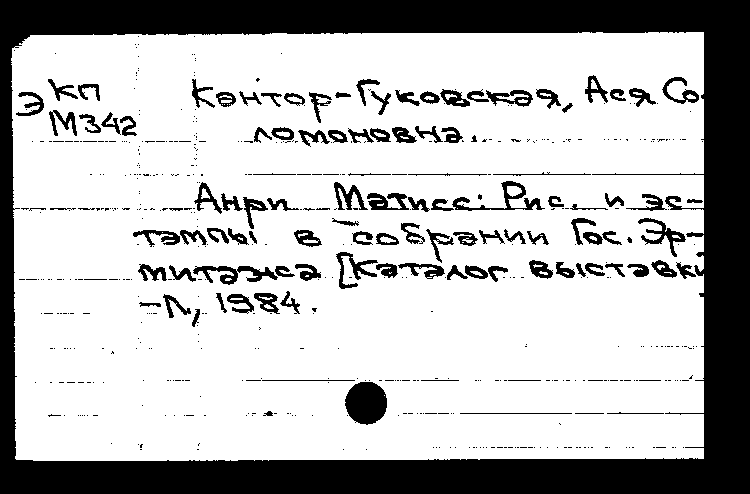 Э КП
М342
Кантор-Гуковская, Ася Со-
ломоновна.
Анри Матисс: Рис. и эс-
тампы в собрании Гос. Эр-
митажа [Каталог выставки
-Л, 1984.